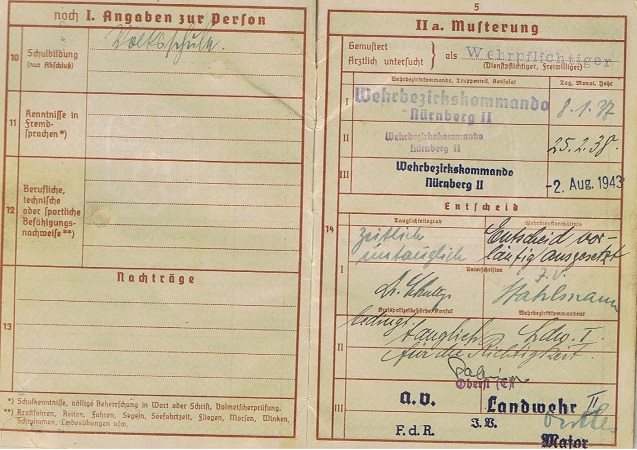 noch I. Angaben zur Person
10
Schulbildung
(nur Abschluß)
Volksschule.
11
Kenntnisse in
Fremd-
sprachen*)
12
Berufliche,
technische
oder sportliche
Befähigungs-
nachweise**)
Nachträge
13
*) Schulkenntnisse, völlige Beherrschung in Wort oder Schrift, Dolmetscherprüfung.
**) Kraftfahren, Reiten, Fahren, Segeln, Seefahrtzeit, Fliegen, Morsen, Winken,
Schwimmen, Leibesübungen usw.
5
II a. Musterung
Gemustert
Ärztlich untersucht
als Wehrpflichtiger
(Dienstpflichtiger, Freiwilliger)
Wehrbezirkskommando, Truppenteil, Konsulat
Tag, Monat, Jahr
I
Wehrbezirkskommando
Nürnberg II
8.1.37
II
Wehrbezirkskommando
Nürnberg II
25.2.38.
III
Wehrbezirkskommando
Nürnberg II
-2. Aug. 1943
14
Entscheid
Tauglichkeitsgrad
Wehrdienstverhältnis
I
zeitlich
untauglich
Entscheid vor-
läufig ausgesetzt
Unterschriften
J.V.
Stahlmann
Kreispolizeibehörde/Konsul
Wehrbezirkskommandeur
II
bedingt
tauglich Ldw. I.
für die Richtigkeit.
Oberst (E)
III
a.v.
Landwehr II
F.d.R.
J.V.
Major